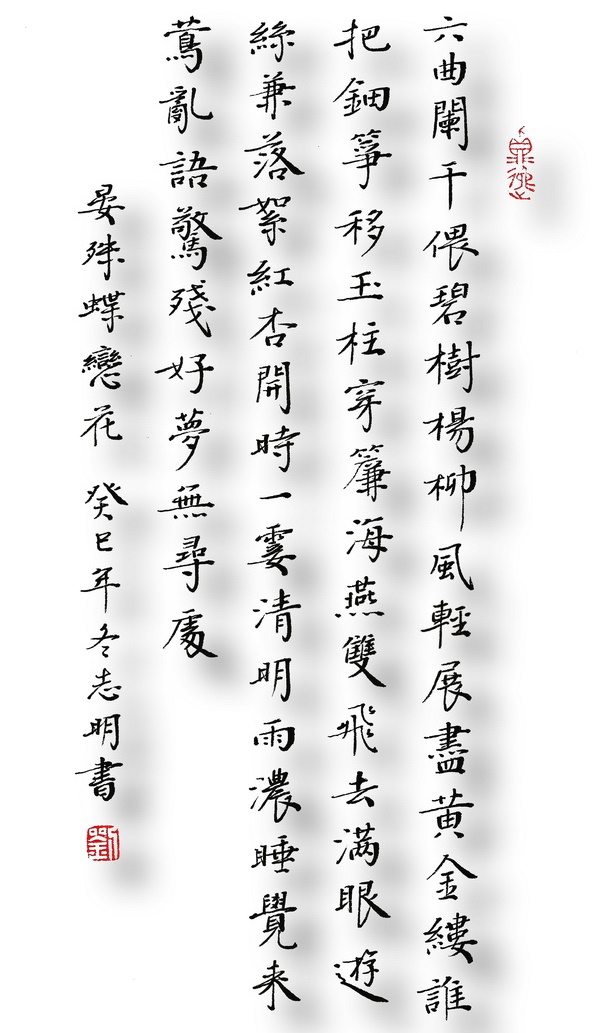 六曲闌干偎碧樹楊柳風輕展盡黄金縷誰
把鈿箏移玉柱穿簾海燕雙飛去满眼遊
絲兼落絮紅杏開時一霎清明雨濃睡覺来
鶯亂語驚殘好夢無尋處
晏殊蝶戀花 癸巳年冬志明書
劉